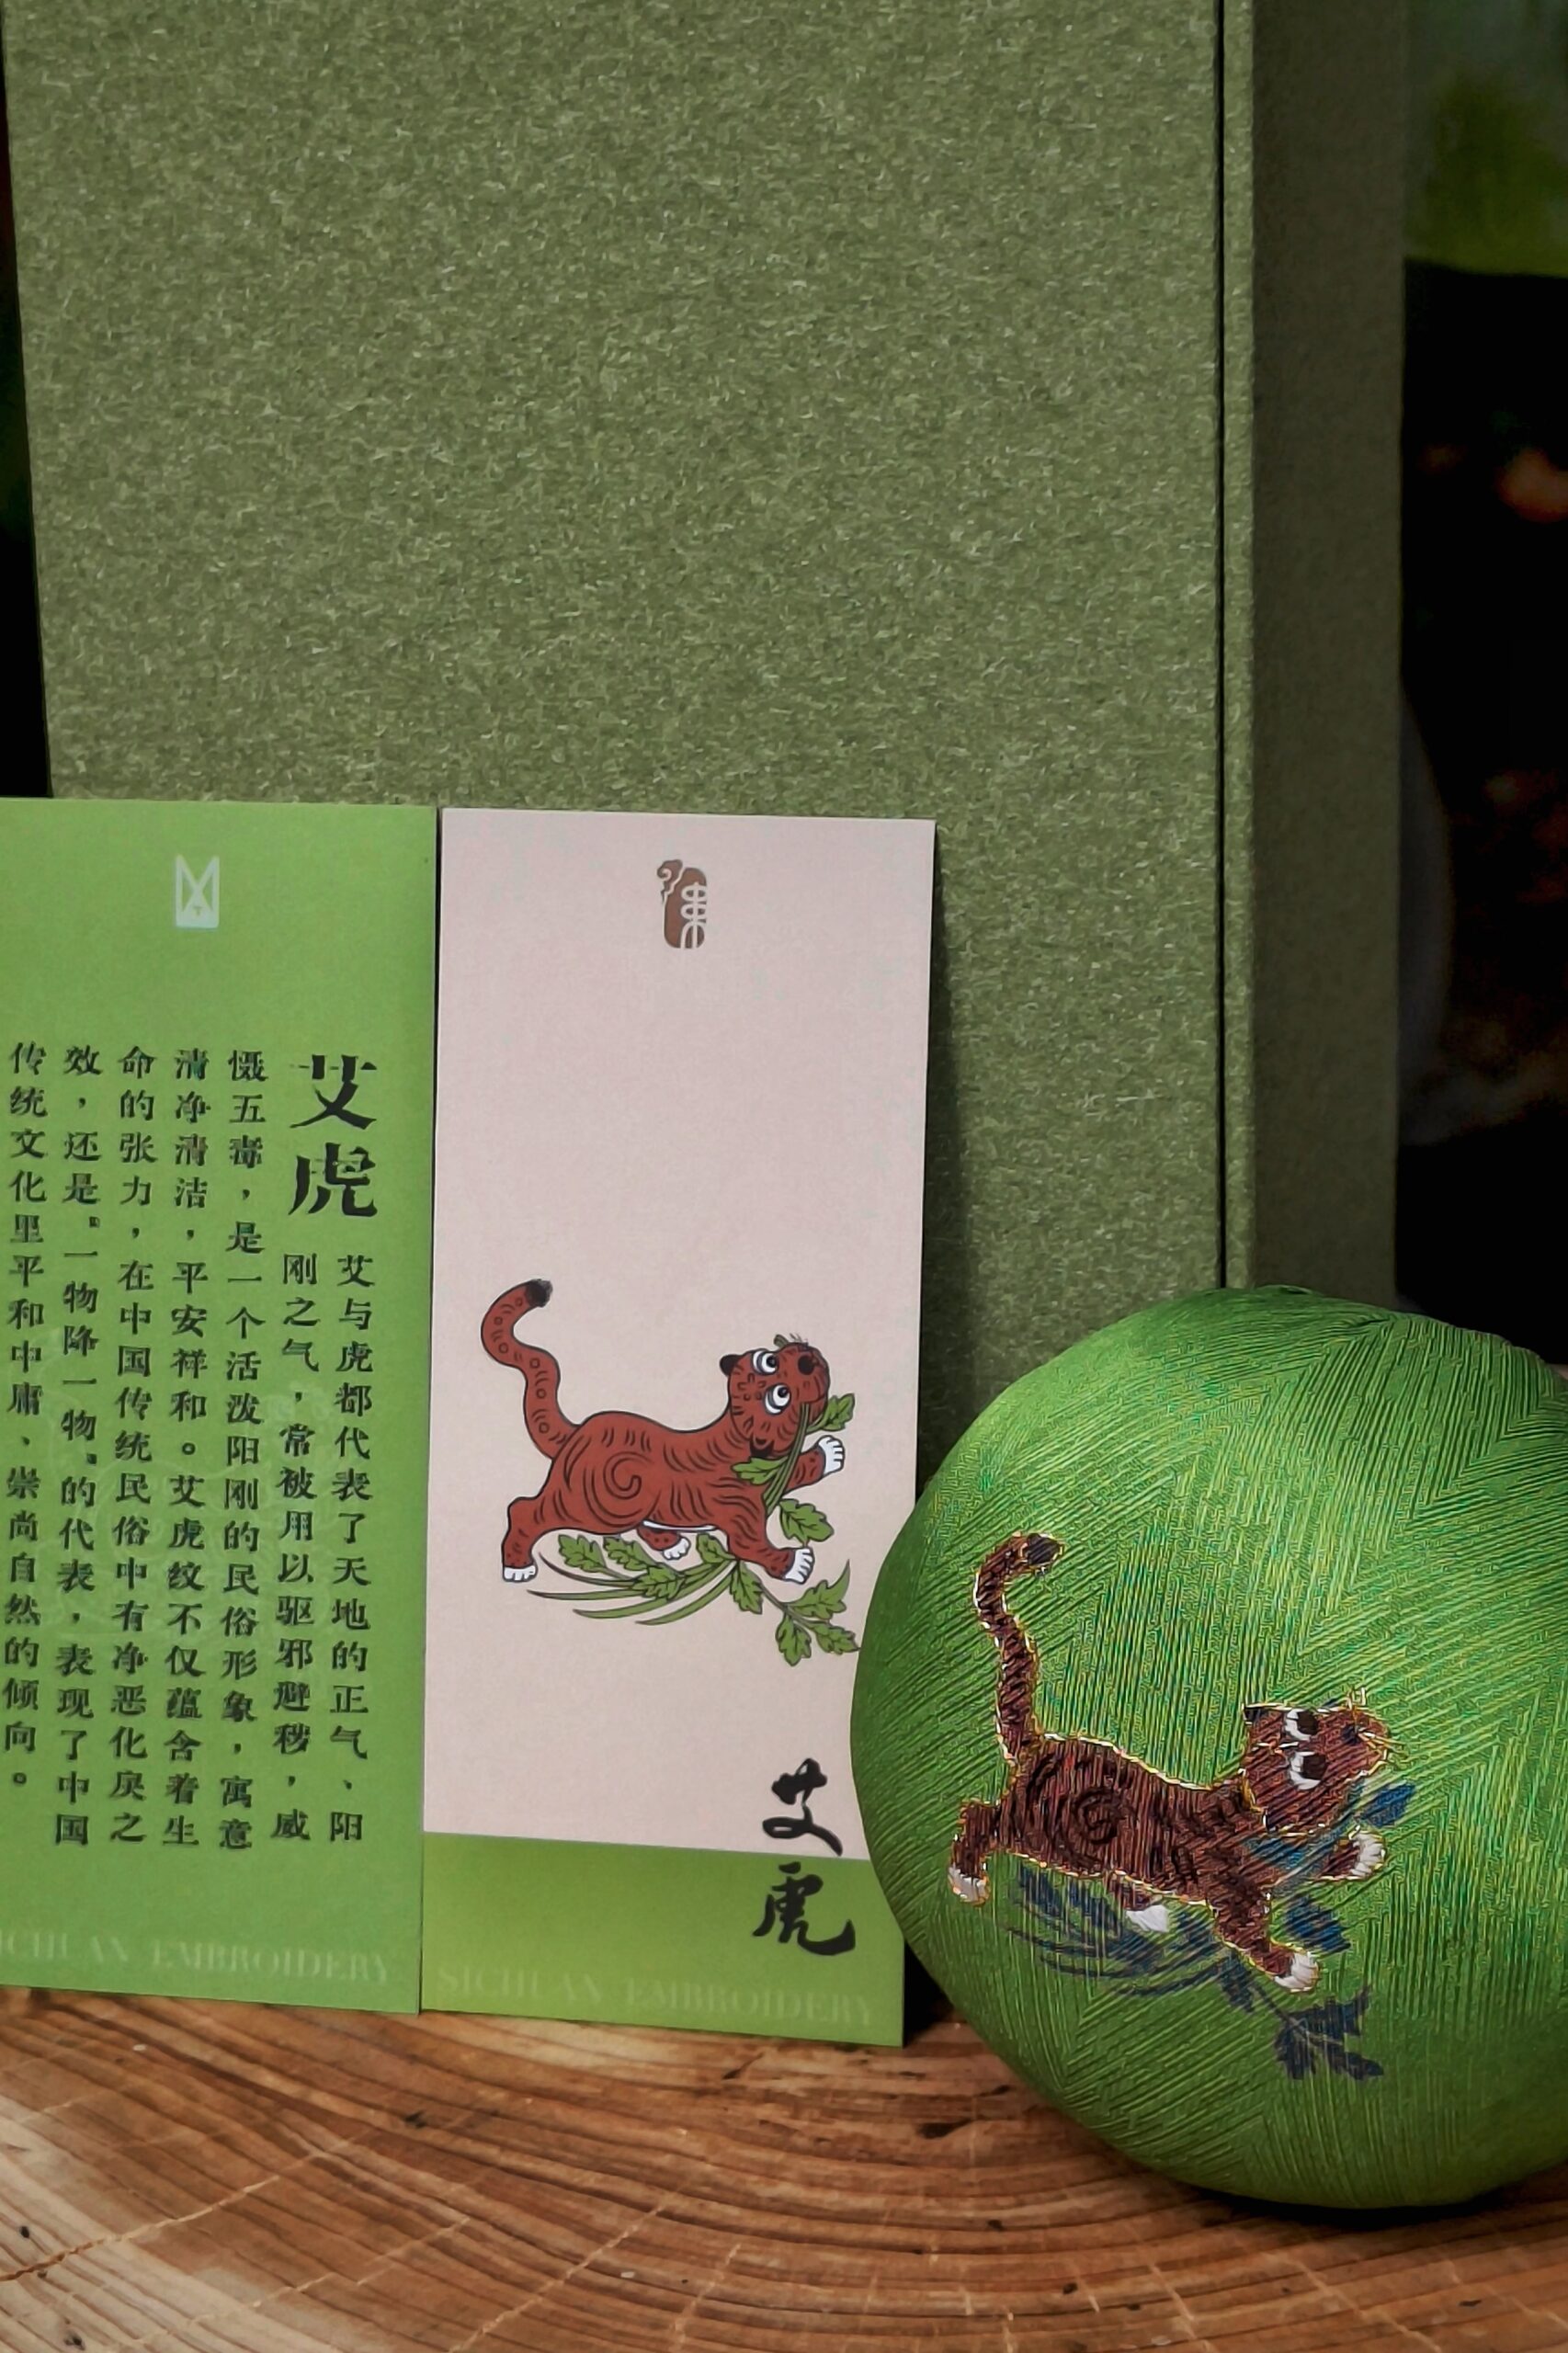 艾虎
艾与虎都代表了天地的正气、阳
刚之气，常被用以驱邪避秽，威
慑五毒，是一个活泼阳刚的民俗形象，寓意
清净清洁，平安祥和。艾虎纹不仅蕴含着生
命的张力，在中国传统民俗中有净恶化戾之
效，还是“一物降一物”的代表，表现了中国
传统文化里平和中庸、崇尚自然的倾向。
SICHUAN EMBROIDERY
艾虎
SICHUAN EMBROIDERY